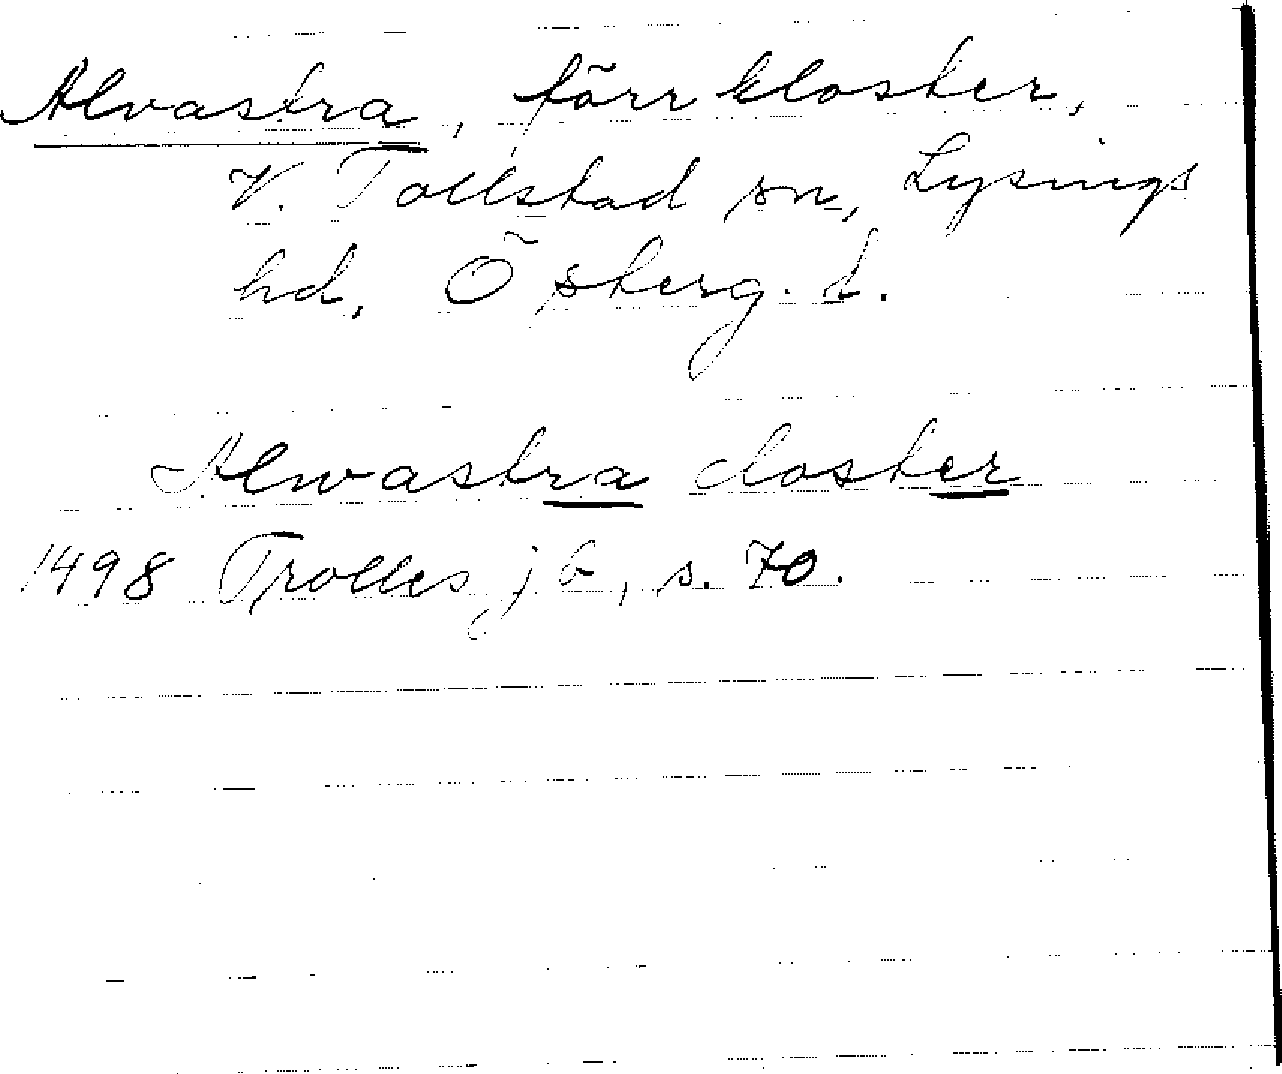 Alvastra, förr kloster,
V. Tollstad sn, Lysings
hd, Österg. l.
Alwastra closter
1498 Trolles jb, s. 70.